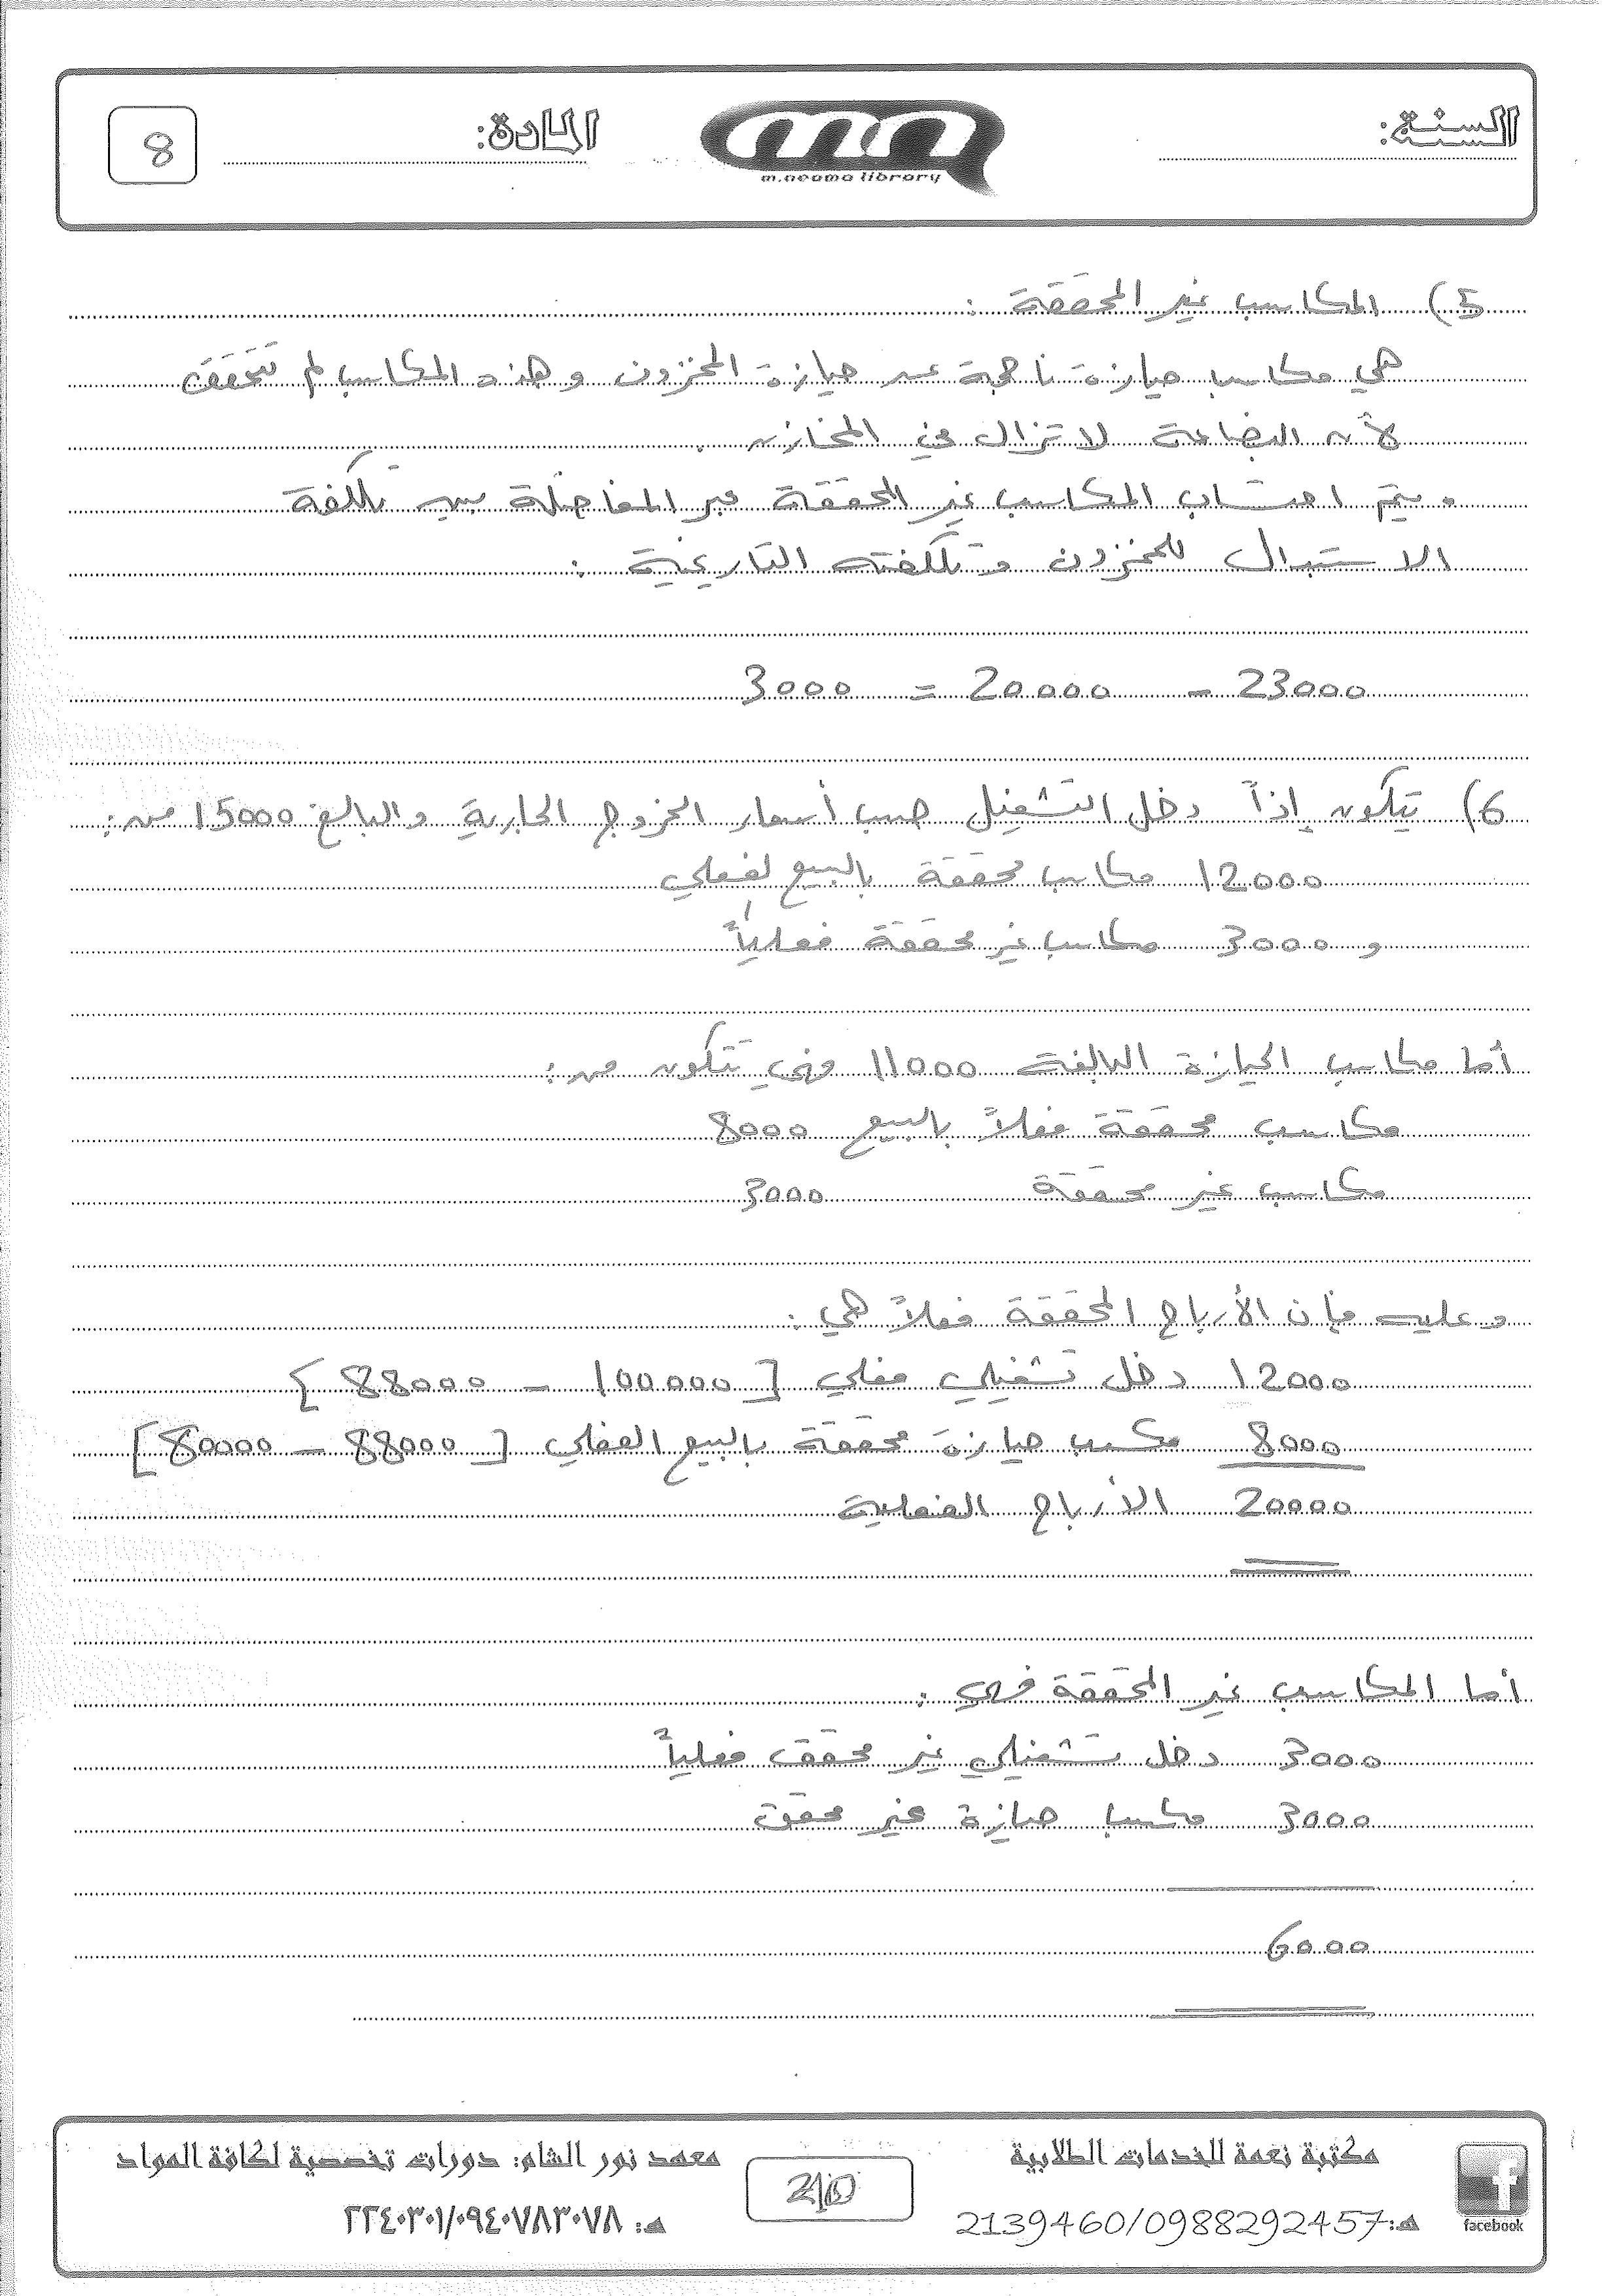 السنة:
المادة:
8
m.neama library
5) المكاسب غير المحققة :
هي مكاسب حيازة ناجمة عن حيازة المخزون وهذه المكاسب لم تتحقق
لأن البضاعة لا تزال في المخازن .
ويتم احتساب المكاسب غير المحققة عبر المفاضلة بين تكلفة
الاستبدال للمخزون وتكلفته التاريخية :
23000 - 20000 = 3000
6) يتكون إذاً دخل التشغيل حسب أسعار الخروج الجارية والبالغ 15000 من:
12000 مكاسب محققة بالبيع لفعلي
و 3000 مكاسب غير محققة فعلياً
أما مكاسب الحيازة البالغة 11000 فهي تتكون من:
مكاسب محققة فعلاً بالبيع 8000
مكاسب غير محققة 3000
وعليه فإن الأرباح المحققة فعلاً هي:
12000 دخل تشغيلي فعلي [100000 - 88000]
8000 مكسب حيازة محققة بالبيع الفعلي [88000 - 80000]
20000 الأرباح الفعلية
أما المكاسب غير المحققة فهي :
3000 دخل تشغيلي غير محقق فعلياً
3000 مكسب حيازة غير محقق
6000
مكتبة نعمة للخدمات الطلابية
هـ: 2139460/0988292457
facebook
معهد نور الشام: دورات تخصصية لكافة المواد
هـ: ٢٢٤٠٣٠١/٠٩٤٠٧٨٣٠٧٨